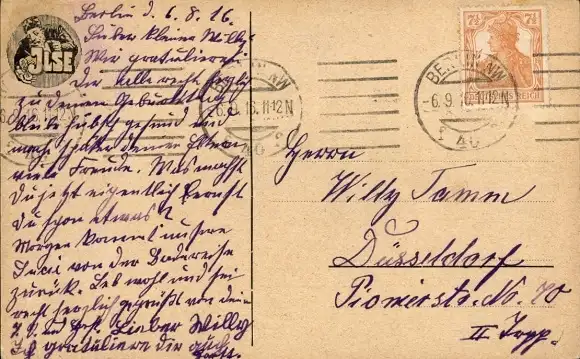 Berlin d. 6. 8. 16.
Lieber kleiner Willy!
Wir gratulieren
Dir alle recht herzlich
zu deinem Geburtstag.
bleib hübsch gesund und
mach später deinen Eltern
viele Freude. Was machst
Du jetzt eigentlich lernst
Du schon etwas?
Morgen kommt unsere
Luci von der Badereise
zurück. Leb wohl und sei
recht herzlich gegrüßt von dein
Lieber Willy
Ich gratuliere dir auch
ILSE
7½ 7½
DEUTSCHES REICH
BERLIN NW
-6.9.16.11-12N
40
Herrn
Willy Tamm
Düsseldorf
Pionierstr. No. 70
II Trpp.